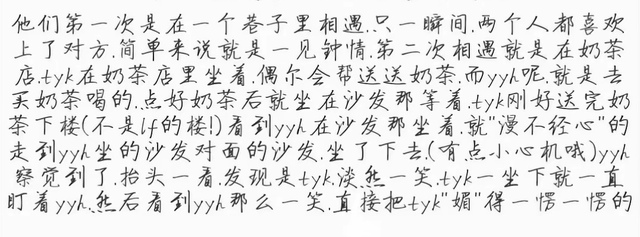 他们第一次是在一个巷子里相遇.只一瞬间.两个人都喜欢
上了对方.简单来说就是一见钟情.第二次相遇就是在奶茶
店.tyk在奶茶店里坐着.偶尔会帮送送奶茶.而yyh呢.就是去
买奶茶喝的.点好奶茶后就坐在沙发那等着.tyk刚好送完奶
茶下楼(不是lf的楼!)看到yyh在沙发那坐着.就"漫不经心"的
走到yyh坐的沙发对面的沙发.坐了下去.(有点小心机哦)yyh
察觉到了.抬头一看.发现是tyk.淡然一笑.tyk一坐下就一直
盯着yyh.然后看到yyh那么一笑.直接把tyk"媚"得一愣一愣的